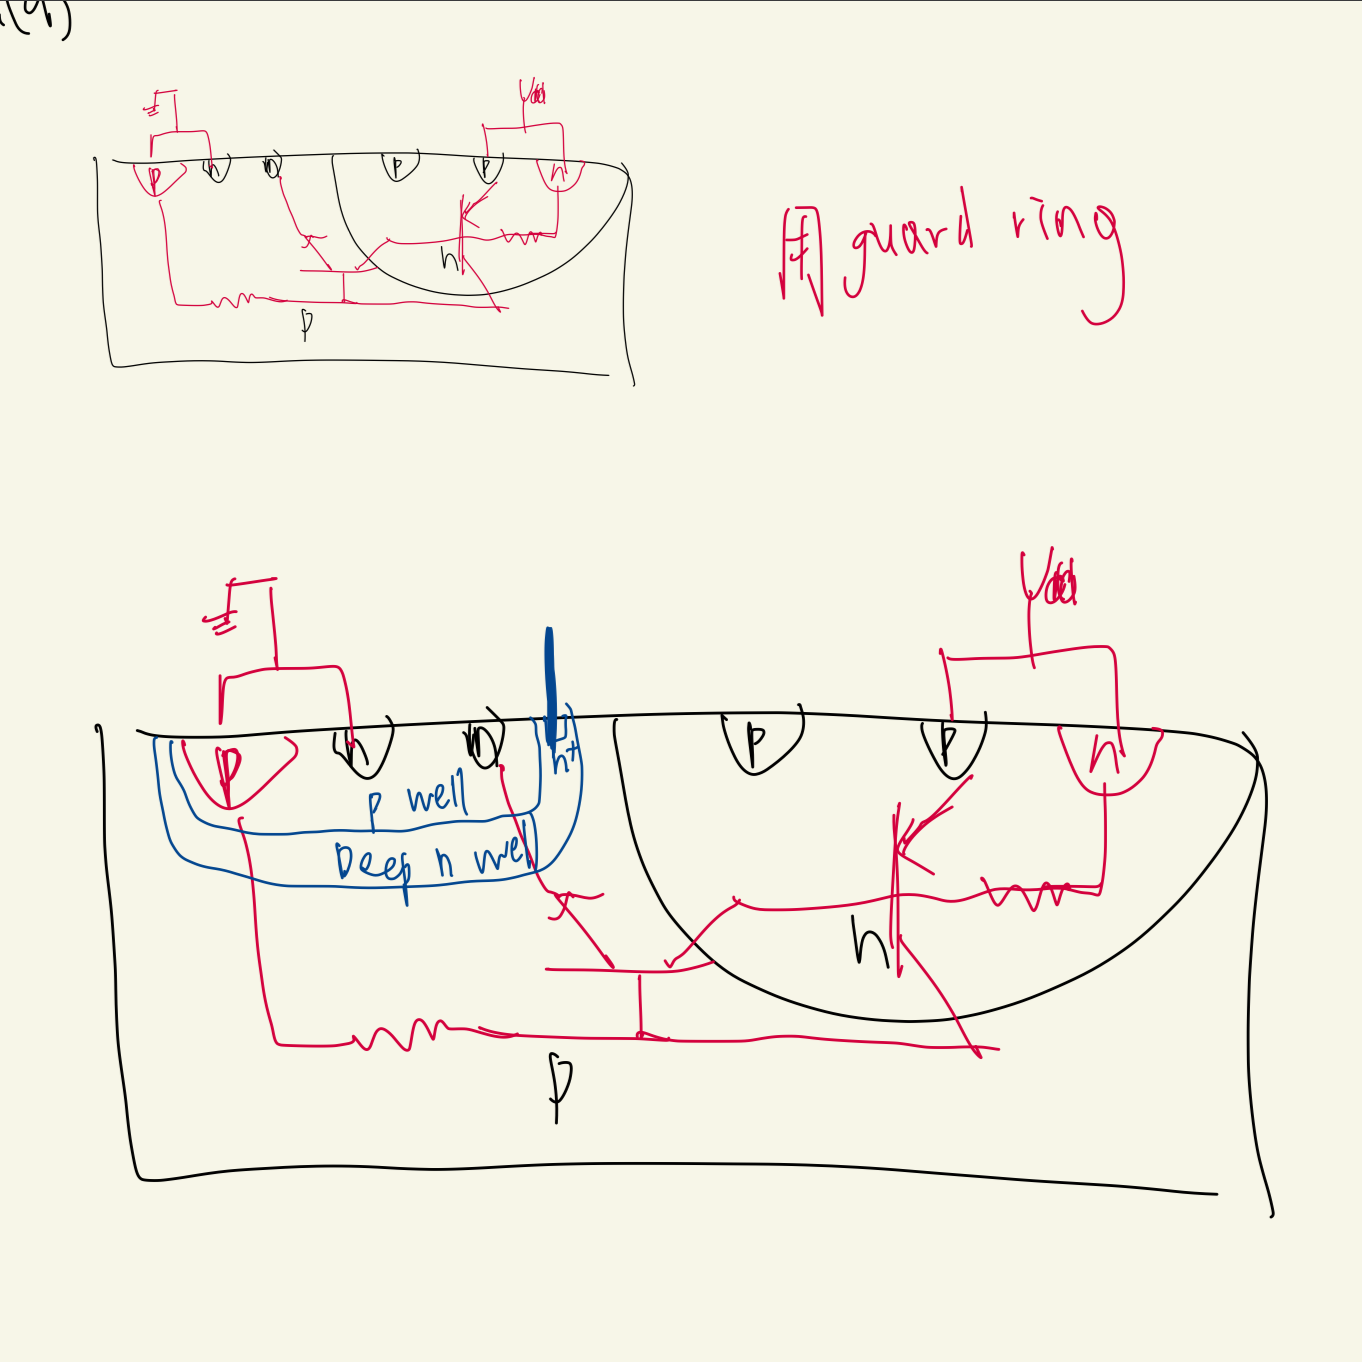 Vdd
p n n p p n
n
p
用 guard ring
Vdd
p n n n+ p p n
p well
Deep n well
n
p